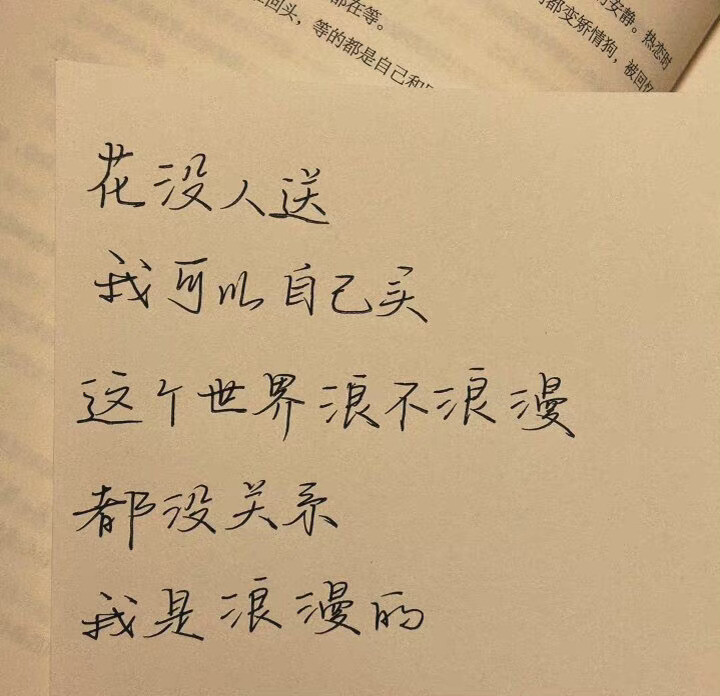 的安静。热恋时
都变矫情狗，被回忆
都在等。
回头，等的都是自己和
花没人送
我可以自己买
这个世界浪不浪漫
都没关系
我是浪漫的